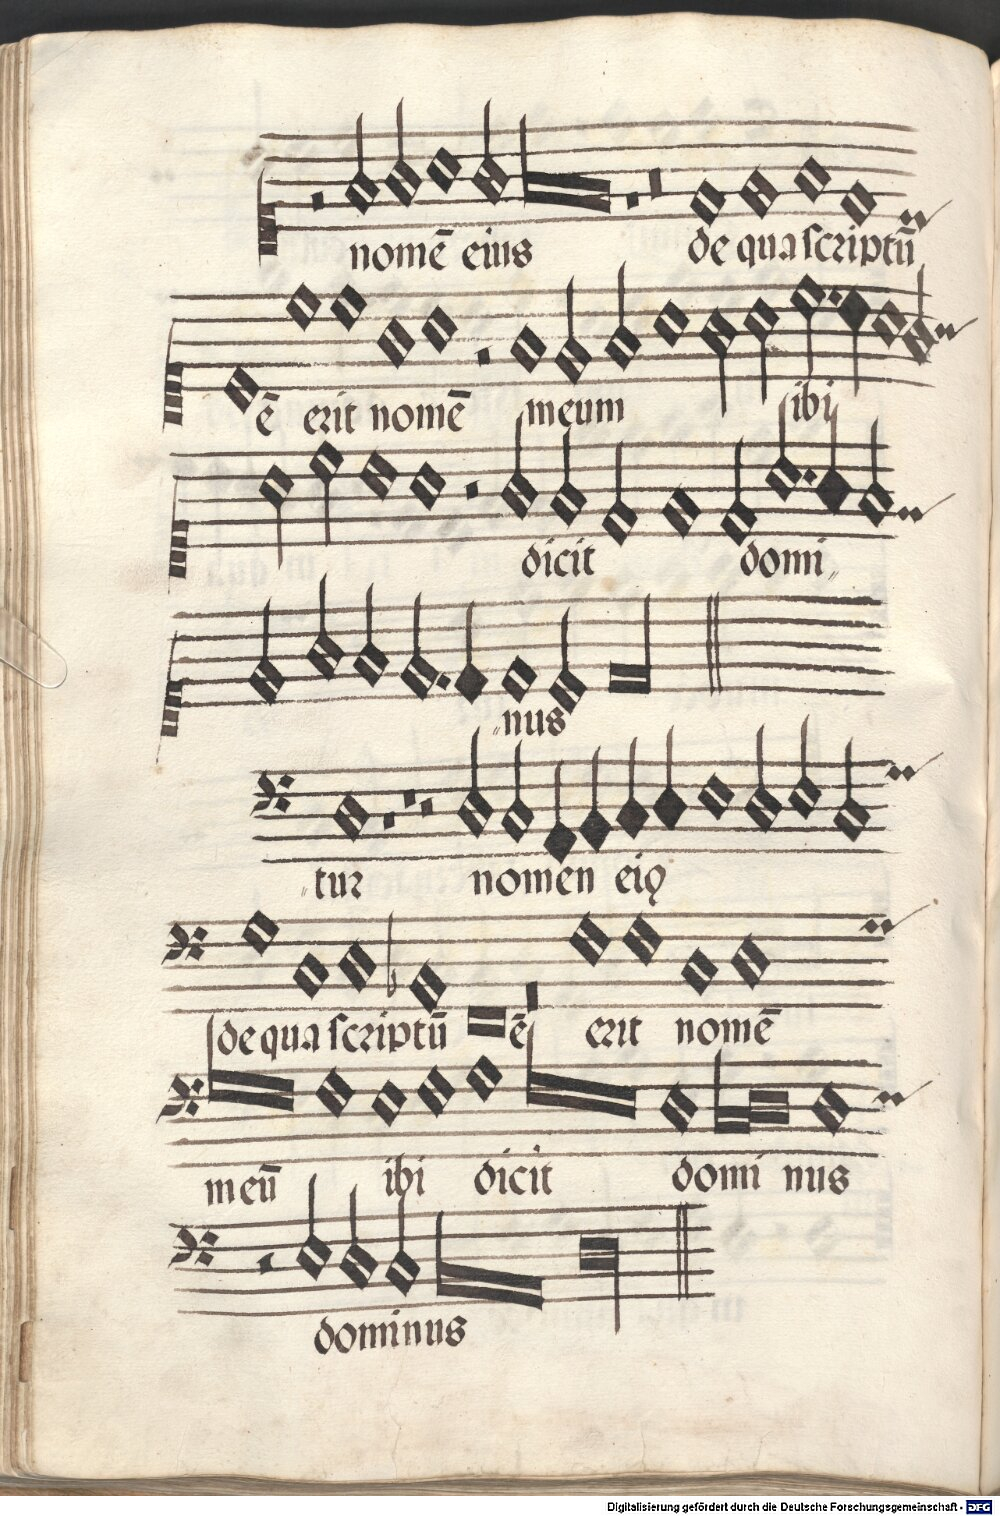 nomē eius de qua scriptū
ē erit nomē meum ibi
dicit domi„
„nus
„tur nomen eiꝯ
de qua scriptū ē erit nomē
meū ibi dicit domi nus
dominus
Digitalisierung gefördert durch die Deutsche Forschungsgemeinschaft - DFG